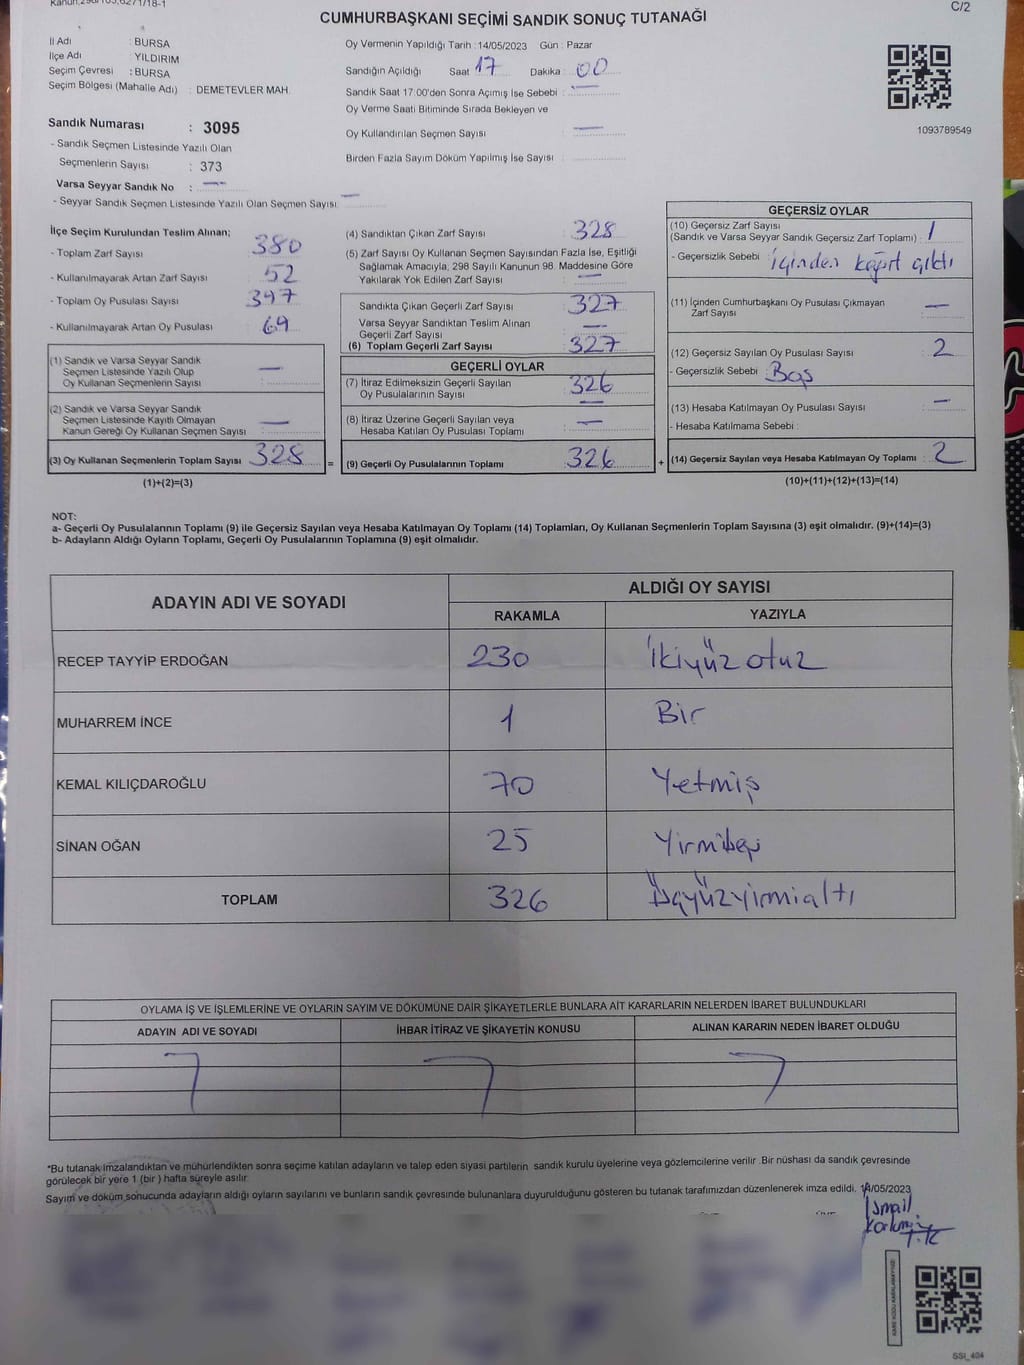 C/2
CUMHURBAŞKANI SEÇİMİ SANDIK SONUÇ TUTANAĞI
İl Adı : BURSA
İlçe Adı : YILDIRIM
Seçim Çevresi : BURSA
Seçim Bölgesi (Mahalle Adı) : DEMETEVLER MAH.
Sandık Numarası : 3095
- Sandık Seçmen Listesinde Yazılı Olan
Seçmenlerin Sayısı : 373
Varsa Seyyar Sandık No : —
- Seyyar Sandık Seçmen Listesinde Yazılı Olan Seçmen Sayısı: —
Oy Vermenin Yapıldığı Tarih : 14/05/2023 Gün : Pazar
Sandığın Açıldığı Saat 17 Dakika : 00
Sandık Saat 17:00'den Sonra Açımış İse Sebebi : —
Oy Verme Saati Bitiminde Sırada Bekleyen ve
Oy Kullandırılan Seçmen Sayısı : —
Birden Fazla Sayım Döküm Yapılmış İse Sayısı :
1093789549
İlçe Seçim Kurulundan Teslim Alınan;
- Toplam Zarf Sayısı : 380
- Kullanılmayarak Artan Zarf Sayısı : 52
- Toplam Oy Pusulası Sayısı : 397
- Kullanılmayarak Artan Oy Pusulası : 69
(1) Sandık ve Varsa Seyyar Sandık
Seçmen Listesinde Yazılı Olup
Oy Kullanan Seçmenlerin Sayısı : —
(2) Sandık ve Varsa Seyyar Sandık
Seçmen Listesinde Kayıtlı Olmayan
Kanun Gereği Oy Kullanan Seçmen Sayısı : —
(3) Oy Kullanan Seçmenlerin Toplam Sayısı : 328 =
(1)+(2)=(3)
(4) Sandıktan Çıkan Zarf Sayısı : 328
(5) Zarf Sayısı Oy Kullanan Seçmen Sayısından Fazla İse, Eşitliği
Sağlamak Amacıyla, 298 Sayılı Kanunun 98. Maddesine Göre
Yakılarak Yok Edilen Zarf Sayısı : —
Sandıkta Çıkan Geçerli Zarf Sayısı : 327
Varsa Seyyar Sandıktan Teslim Alınan
Geçerli Zarf Sayısı : —
(6) Toplam Geçerli Zarf Sayısı : 327
GEÇERLİ OYLAR
(7) İtiraz Edilmeksizin Geçerli Sayılan
Oy Pusulalarının Sayısı : 326
(8) İtiraz Üzerine Geçerli Sayılan veya
Hesaba Katılan Oy Pusulası Toplamı : —
(9) Geçerli Oy Pusulalarının Toplamı : 326 +
GEÇERSİZ OYLAR
(10) Geçersiz Zarf Sayısı
(Sandık ve Varsa Seyyar Sandık Geçersiz Zarf Toplamı) : 1
- Geçersizlik Sebebi : içinden kağıt çıktı
(11) İçinden Cumhurbaşkanı Oy Pusulası Çıkmayan
Zarf Sayısı : —
(12) Geçersiz Sayılan Oy Pusulası Sayısı : 2
- Geçersizlik Sebebi : Boş
(13) Hesaba Katılmayan Oy Pusulası Sayısı : —
- Hesaba Katılmama Sebebi :
(14) Geçersiz Sayılan veya Hesaba Katılmayan Oy Toplamı : 2
(10)+(11)+(12)+(13)=(14)
NOT:
a- Geçerli Oy Pusulalarının Toplamı (9) ile Geçersiz Sayılan veya Hesaba Katılmayan Oy Toplamı (14) Toplamları, Oy Kullanan Seçmenlerin Toplam Sayısına (3) eşit olmalıdır. (9)+(14)=(3)
b- Adayların Aldığı Oyların Toplamı, Geçerli Oy Pusulalarının Toplamına (9) eşit olmalıdır.
ADAYIN ADI VE SOYADI
ALDIĞI OY SAYISI
RAKAMLA YAZIYLA
RECEP TAYYİP ERDOĞAN 230 İkiyüzotuz
MUHARREM İNCE 1 Bir
KEMAL KILIÇDAROĞLU 70 Yetmiş
SİNAN OĞAN 25 Yirmibeş
TOPLAM 326 Üçyüzyirmialtı
OYLAMA İŞ VE İŞLEMLERİNE VE OYLARIN SAYIM VE DÖKÜMÜNE DAİR ŞİKAYETLERLE BUNLARA AİT KARARLARIN NELERDEN İBARET BULUNDUKLARI
ADAYIN ADI VE SOYADI İHBAR İTİRAZ VE ŞİKAYETİN KONUSU ALINAN KARARIN NEDEN İBARET OLDUĞU
*Bu tutanak imzalandıktan ve mühürlendikten sonra seçime katılan adayların ve talep eden siyasi partilerin sandık kurulu üyelerine veya gözlemcilerine verilir. Bir nüshası da sandık çevresinde
görülecek bir yere 1 (bir) hafta süreyle asılır.
Sayım ve döküm sonucunda adayların aldığı oyların sayılarını ve bunların sandık çevresinde bulunanlara duyurulduğunu gösteren bu tutanak tarafımızdan düzenlenerek imza edildi. 14/05/2023
İsmail
SSI_404